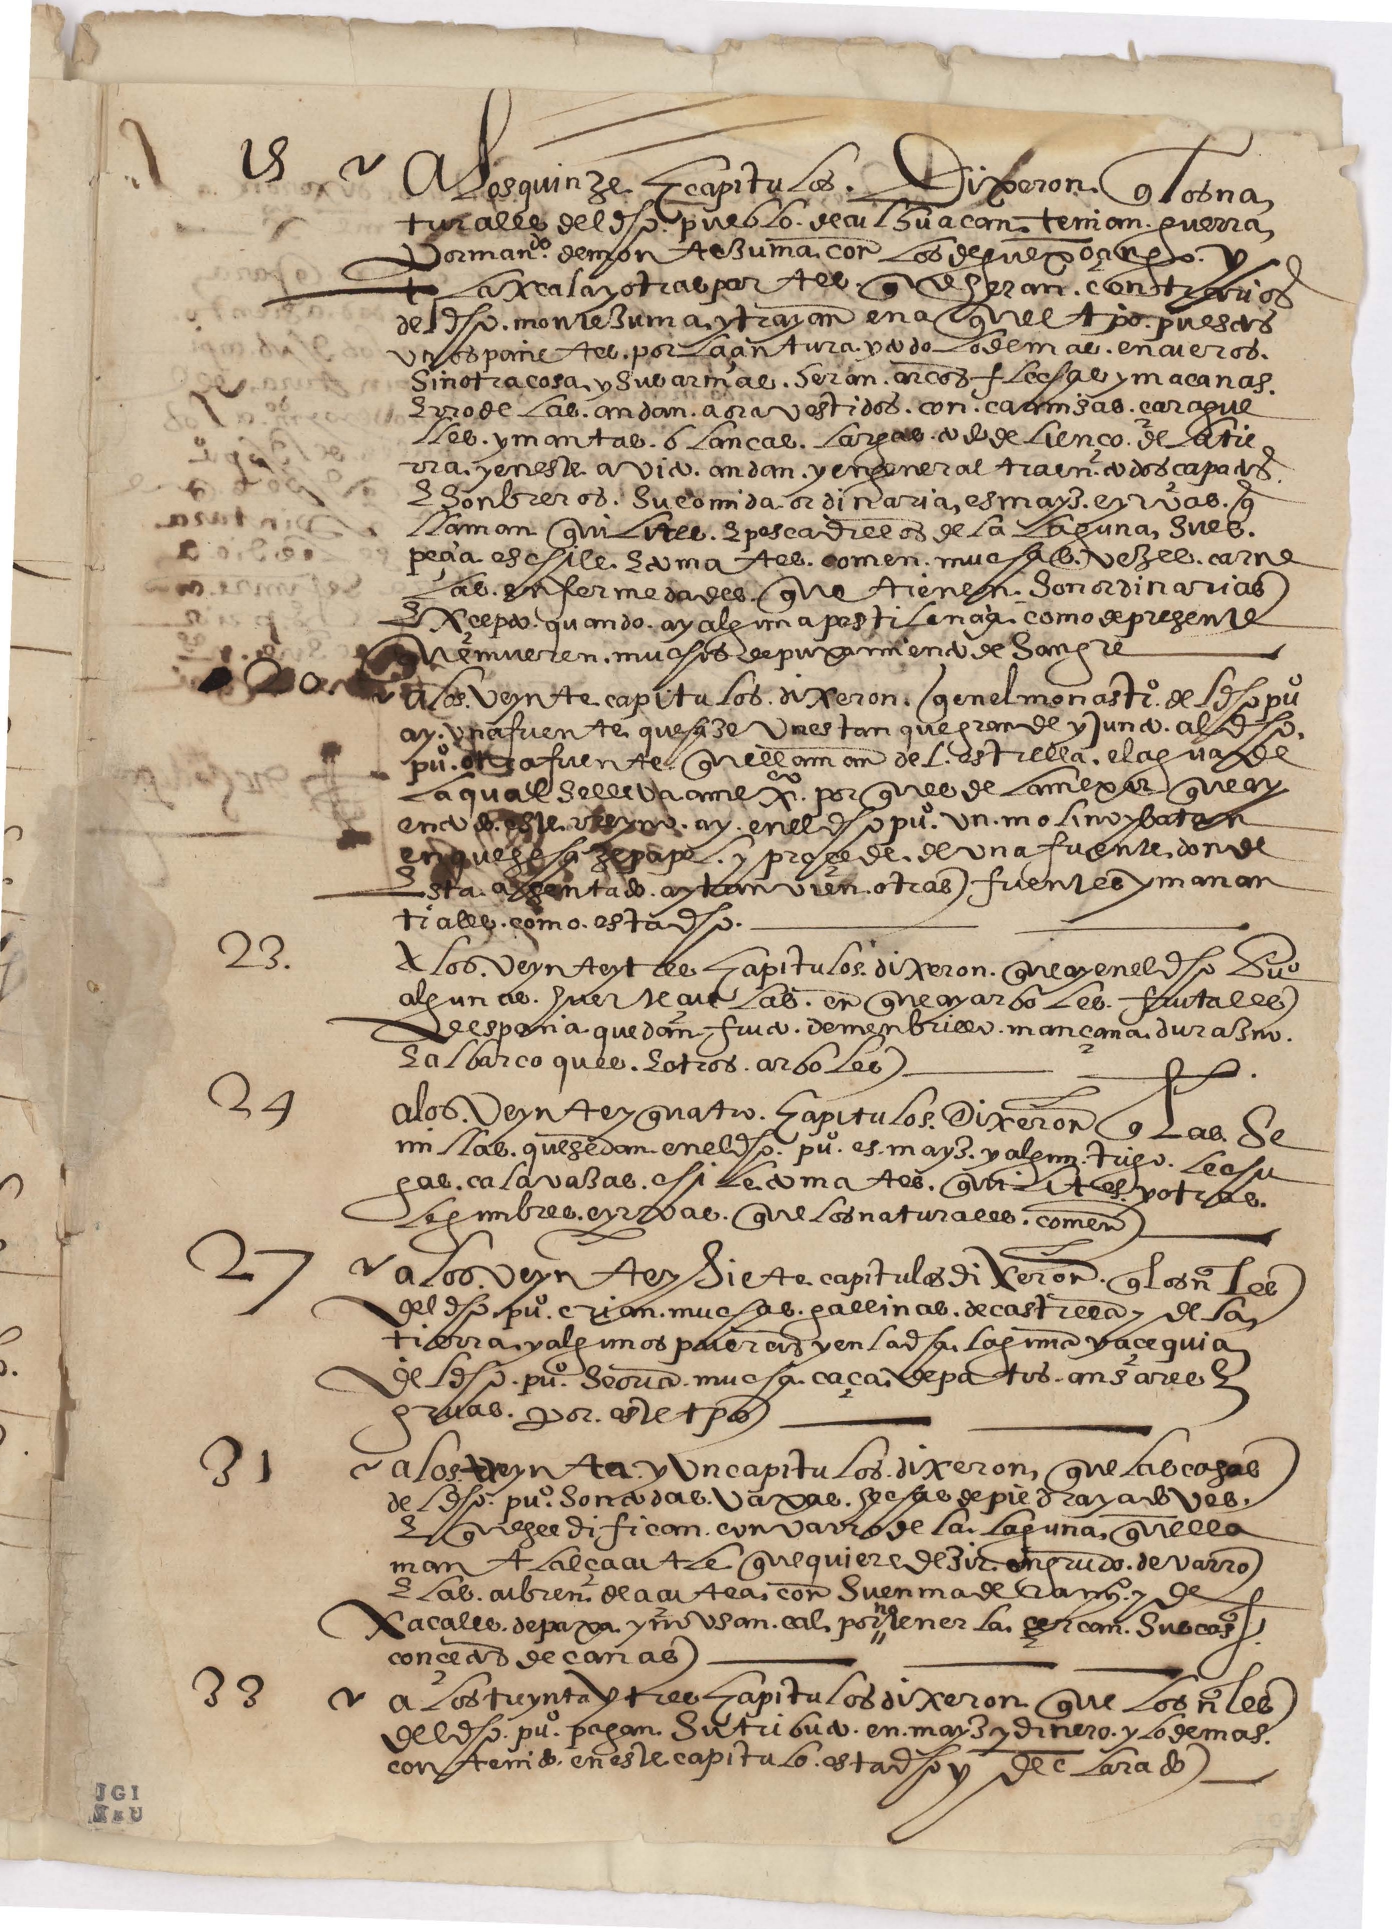 15 A los quinze capitulos. Dixeron. q los na
turalles del dho. pueblo. de culhuacan. tenian. guerra
Por mando. de monteZuma. con los de guexoçingo. y
tlaxcala y otras partes. que heran. contrarios
del dho. monteZuma. y trayan en aquel tpo. puestos
unos pañetes. por la çintura. y todo lo demas. en cueros.
Sin otra cosa. y Sus armas. Seran. arcos flechas y macanas.
E rrodelas. andan. aora vestidos. con. camisas. carague
lles. y mantas. blancas. largas. todo de lienço. de la tie
rra. y en este. avito. andan. y en general traen. todos capatos
E Sonbreros. Su comida ordinaria, es mayz. e yrvas. q
llaman quilites. E pescadillos de la laguna, Su es.
peçia es chile. E tomates. comen. muchas. vezes. carne
las. enfermedades. que tienen. Son ordinarias
Exçepto. quando. ay alguna pestilençia. como de presente
que mueren. muchos de puxamiento de Sangre
20 a los. veynte capitulos. dixeron. q en el monastro. del dho puo
ay. una fuente. que haze un estanque grande y junto. al dho.
puo. otra fuente. que llaman de l. estrella. el agua de
la qual Se lleva a mexco. por que es de la mejor que ay
en todo. este rreyno. ay. en el dho puo. un. molino y batan
en que Se haze papel. y proçede. de una fuente. donde
Esta. asentado. ay tanvien. otras fuentes y manan
tialles. como. esta dho.
23. A los. veynte y tres capitulos. dixeron. que ay en el dho puo
algunas. huertequelas. en que ay arboles. frutalles
de españa que dan fruto. de menbrillo. mançana. duraZno.
E albarcoques. E otros. arboles
24 a los. veynte y quatro. capitulos. Dixeron q las Se
millas. que Se dan. en el dho. puo. es. mayz. y algun. trigo. lechu
gas. calavaZas. chile. tomates. quilites. y otras.
legunbres. e yrvas. que los naturalles. comen
27 a los. veynte y Siete. capitulos dixeron. q los nales
del dho. puo. crian. muchas. gallinas. de castilla y de la
tierra. y algunos puercos y en la dha. laguna y acequia
del dho. puo. Se cria. mucha. caça. de patos. ansares E
gruas. Por. este tpo
31 a los. treynta. y un capitulos. dixeron, que las casas
del dho. puo. Son todas. vaxas. hechas de piedra y adoves.
E que Se edifican. con varro de la. laguna, que lla
man tlalçacutle que quiere dezir. engrudo. de varro
E las. cubren. de açutea. con Su enmaderamo. y de
Xacales. de paxa. y no usan. cal. por no tener la. çercan. Sus casas
con çetos de cañas
33 a los treynta y tres capitulos dixeron que los nales
del dho. puo. pagan. Su tributo. en. mayz y dinero. y lo demas.
contenido. en este capitulo. esta dho y declarado
JGI